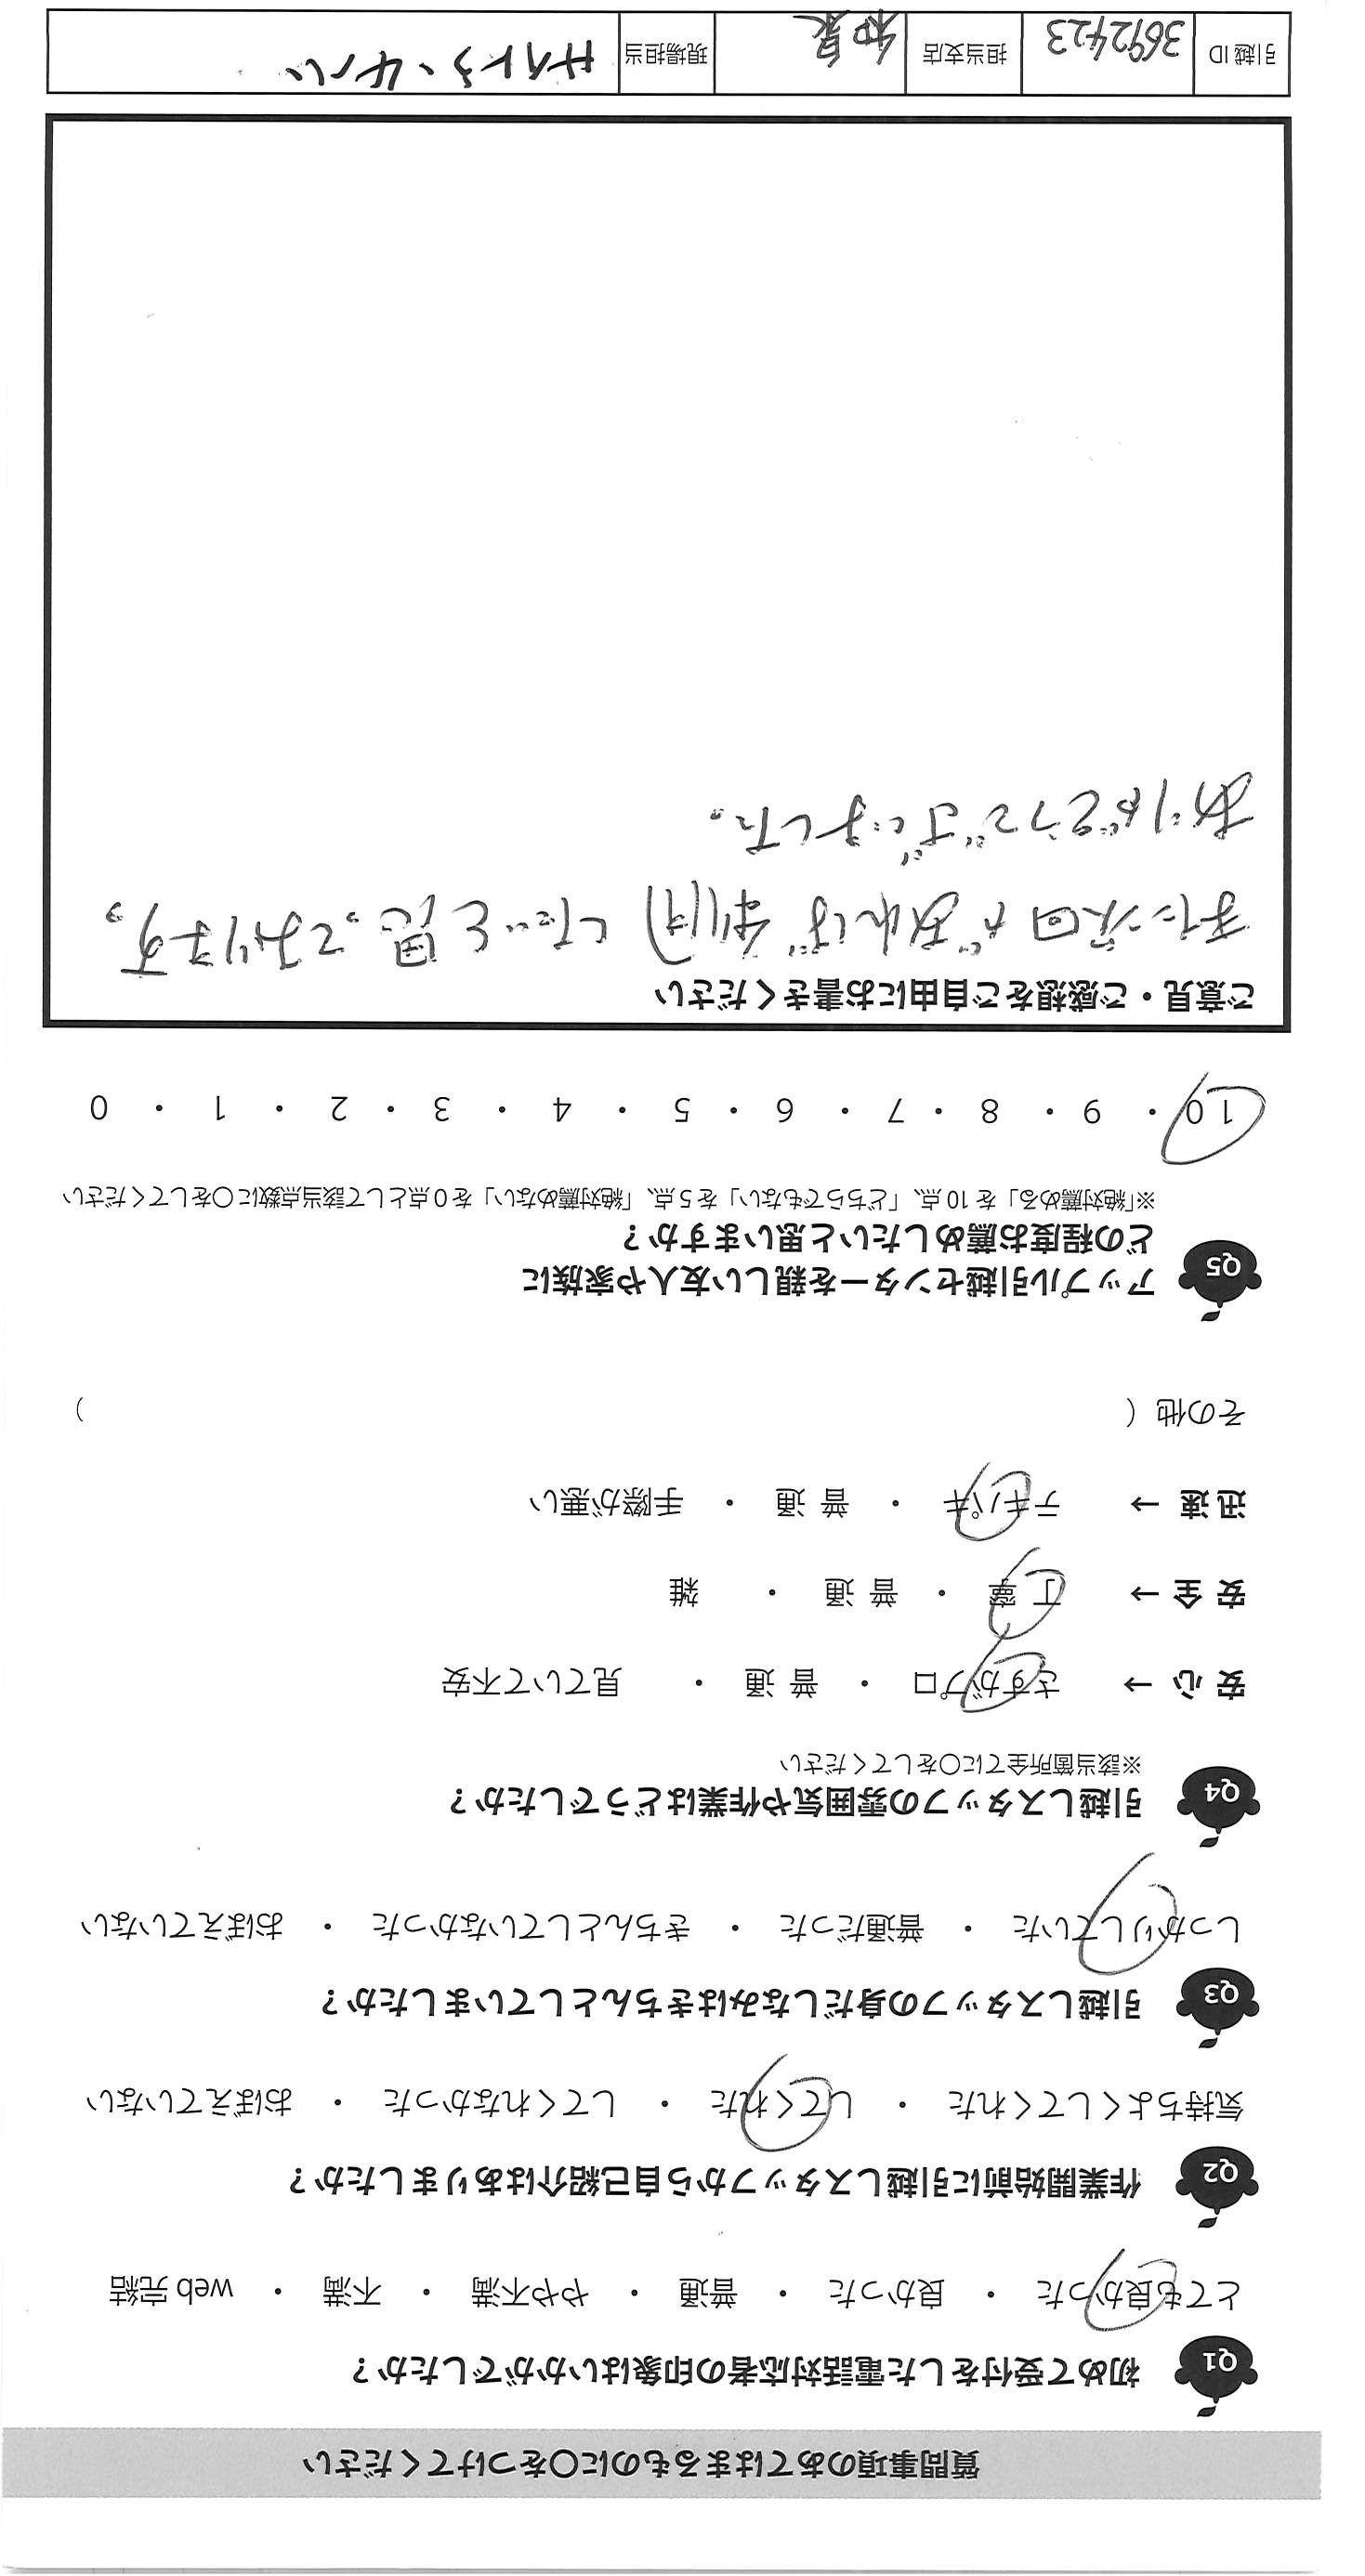 質問事項のあてはまるものに〇をつけてください
Q1 初めて受付をした電話対応者の印象はいかがでしたか？
とても良かった ・ 良かった ・ 普通 ・ やや不満 ・ 不満 ・ web 完結
Q2 作業開始前に引越しスタッフから自己紹介はありましたか？
気持ちよくしてくれた ・ してくれた ・ してくれなかった ・ おぼえていない
Q3 引越しスタッフの身だしなみはきちんとしていましたか？
しっかりしていた ・ 普通だった ・ きちんとしていなかった ・ おぼえていない
Q4 引越しスタッフの雰囲気や作業はどうでしたか？
※該当箇所全てに〇をしてください
安 心 → さすがプロ ・ 普 通 ・ 見ていて不安
安 全 → 丁 寧 ・ 普 通 ・ 雑
迅 速 → テキパキ ・ 普 通 ・ 手際が悪い
その他（ ）
Q5 アップル引越センターを親しい友人や家族に
どの程度お薦めしたいと思いますか？
※「絶対薦める」を 10 点、「どちらでもない」を 5 点、「絶対薦めない」を 0 点として該当点数に〇をしてください
10 ・ 9 ・ 8 ・ 7 ・ 6 ・ 5 ・ 4 ・ 3 ・ 2 ・ 1 ・ 0
ご意見・ご感想をご自由にお書きください
また次回があれば利用したいと思っております。
ありがとうございました。
引越 ID 3692423 担当支店 和泉 現場担当 サイトう・